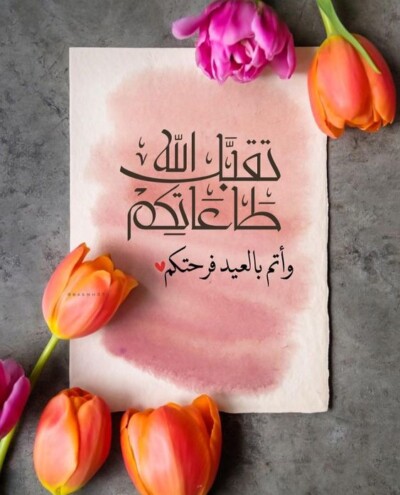 تقبَّل الله
طَاعَاتِكُمْ
وأتم بالعيد فرحتكم